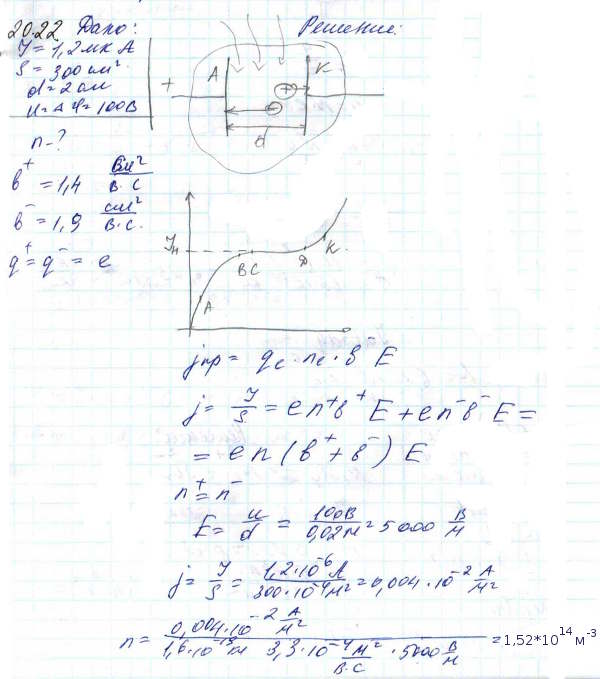 20.22 Дано: Решение:
I = 1,2 мкА
S = 300 см²
d = 2 см
U = Δφ = 100В
n - ?
b⁺ = 1,4 см²/В·С
b⁻ = 1,9 см²/В·С.
q⁺ = q⁻ = e
+ А К -
+
-
d
Iн
А В С D К
jпр = qe · ne · b⁻ E
j = I/S = e n⁺ b⁺ E + e n⁻ b⁻ E =
= e n (b⁺ + b⁻) E
n⁺ = n⁻
E = U/d = 100В/0,02м = 5000 В/м
j = I/S = 1,2·10⁻⁶ А/300·10⁻⁴ м² = 0,004·10⁻² А/м²
n = 0,004·10⁻² А/м² / 1,6·10⁻¹⁹ Кл 3,3·10⁻⁴ м²/В·С · 5000 В/м = 1,52*10¹⁴ м⁻³